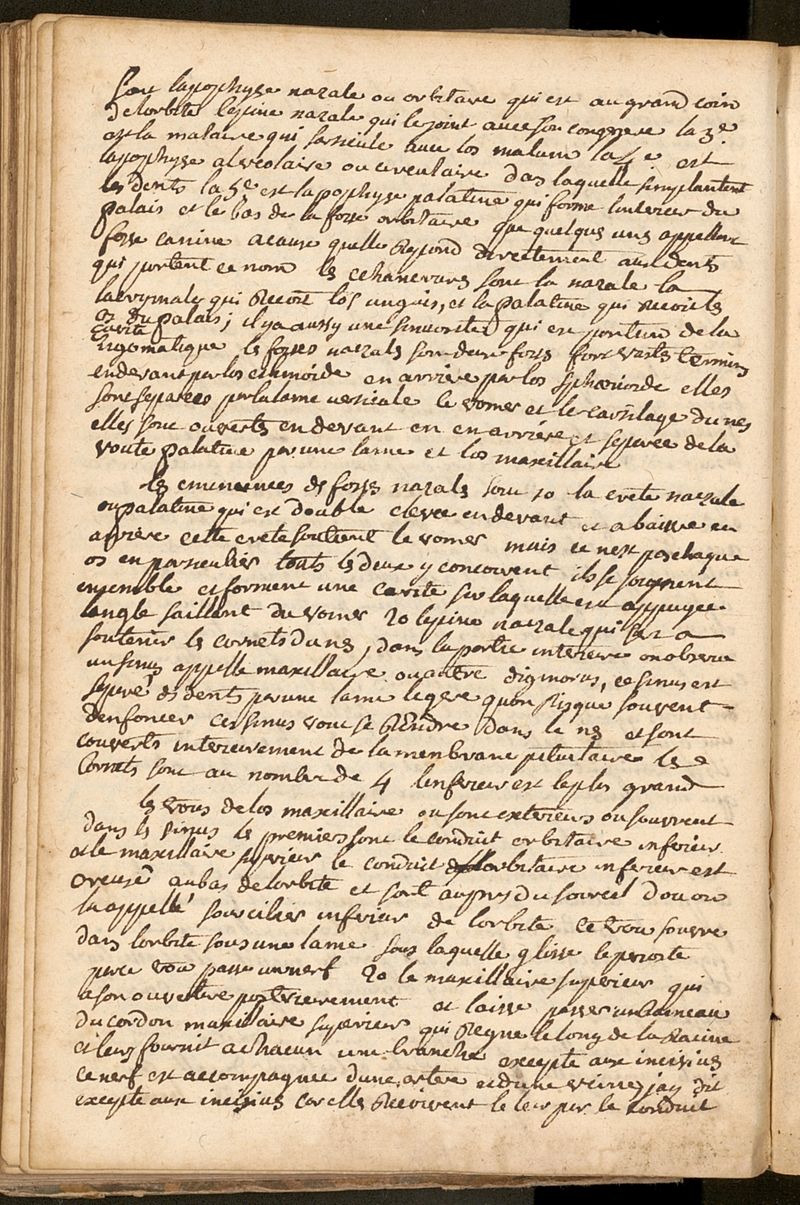 sont lapophyse nazale ou orbitaire qui est au grand coin
de lorbite lepine nazale qui le joint avec son congenere la 3e
est la malaire qui sarticule avec los malum la 4e est
lapophyse alveolaire ou circulaire dans laquelle simplantent
les dents la 5e est lapophyse palatine qui forme linterieur du
palais et le bas de la fosse orbitaire que quelques uns appellent
fosse canine acause quelle repond directement aux dents
qui portent ce nom les echancrures sont la nazale la
lacrymale qui recoit los unguis, et la palatine qui recoit les
os du palais; il ya aussy une sinuosité qui est portion de la
cavité
Zigomatique les fosses nazals sont deux fosses fort vastes terminés
en devant par los etmoide en arriere par los sphœnoide elles
sont separées par la lame verticale le vomer et le cartilage du nes
elles sont ouvertes en devant en en arriere et separée de la
voute palatine par une lame et los maxillaire
les eminences des fosses nazals sont 1o la crete nazale
ou palatine qui est double elevée en devant et abaissé en
arriere cette crete soutient le vomer mais ce nest pas chaque
os en particulier touts les deux y concourent ils se joignent
ensemble et forment une cavité sur laquelle est appuyée
langle saillant du vomer 2o lepine nazale qui sert a
soutenir les cornets du nes, dans la partie interieure on observe
un sinus appellé maxillaire ou antre digmorus, ce sinus est
separé des dents par une lame legere quon risque souvent
denfoncer ces sinus vont se rendre dans le nes et sont
couverts interieurement de la membrane pituitaire les
cornets sont au nombre de 4 linferieur est le plus grand
les trous de los maxillaire ou sont exterieurs ou souvrent
dans les sinus les premiers sont le conduit orbitaire inferieur
et le maxillaire superieur le conduit orbitaire inferieur est
creusé au bas de lorbite et sort aupres du sourcil dou on
la appellé sourcilier inferieur de lorbite ce trou souvre
dans lorbite sous une lame sous laquelle glisse le perioste
par ce trou passe un nerf 2o le maxillaire superieur qui
a son ouverture posterieurement et laisse passer un rameau
du cordon maxillaire superieur qui regne le long de la racine
et leur fournit a chacun une branche excepté aux incisives
ce nerf est accompagnée dune artere et dune veine, jay dit
excepté aux incisives car elles recoivent le leur par le conduit